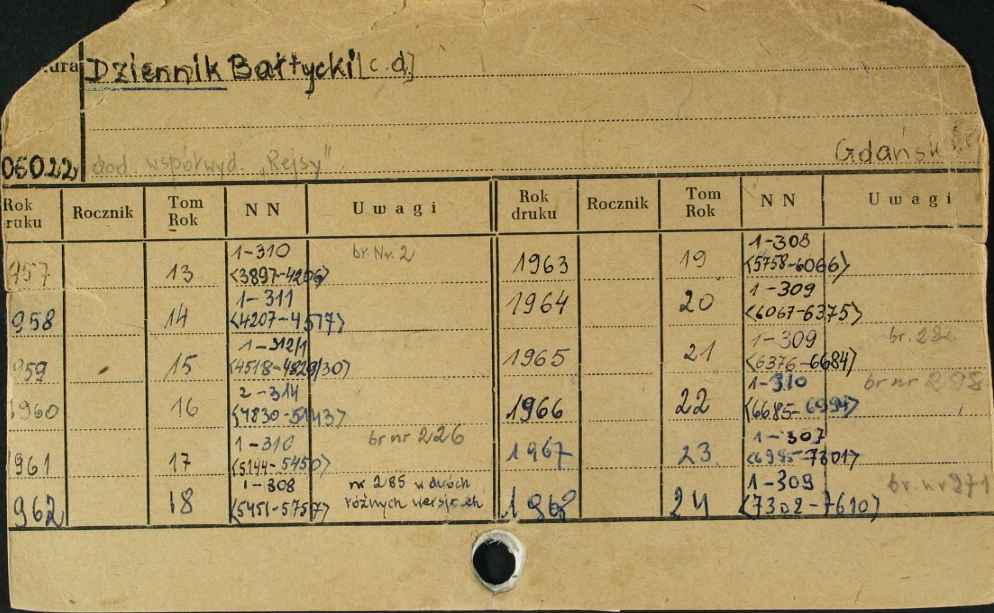 Dziennik Bałtycki [c.d.]
06022 dod. współwyd. „Rejsy" Gdańsk
Rok druku Rocznik Tom Rok NN Uwagi Rok druku Rocznik Tom Rok NN Uwagi
957 13 1-310 <3897-4206> br. Nr. 2 1963 19 1-308 <5758-6066>
958 14 1-311 <4207-4517> 1964 20 1-309 <6067-6375>
959 15 1-312/1 <4518-4829/30> 1965 21 1-309 <6376-6684> br.
1960 16 2-314 <4830-5143> 1966 22 1-310 <6685-6994> br nr
1961 17 1-310 <5144-5450> br nr 226 1967 23 1-307 <6995-7301>
962 18 1-308 <5451-5757> nr 285 w dwóch różnych wersjach 1968 24 1-309 <7302-7610> br. nr 271